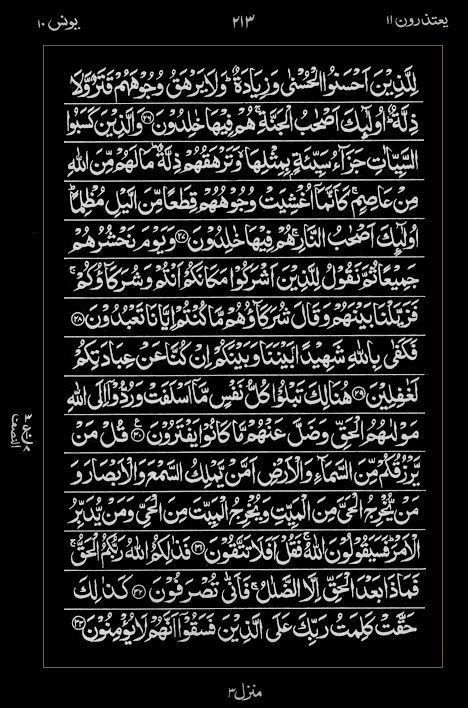 يعتذرون ١١ ٢١٣ يونس ١٠
لِلَّذِيْنَ اَحْسَنُوا الْحُسْنٰى وَزِيَادَةٌ ؕ وَلَا يَرْهَقُ وُجُوْهَهُمْ قَتَرٌ وَّلَا
ذِلَّةٌ ؕ اُولٰٓئِكَ اَصْحٰبُ الْجَنَّةِ ۚ هُمْ فِيْهَا خٰلِدُوْنَ ﴿۲۶﴾ وَالَّذِيْنَ كَسَبُوا
السَّيِّاٰتِ جَزَآءُ سَيِّئَةٍۭ بِمِثْلِهَا ۙ وَتَرْهَقُهُمْ ذِلَّةٌ ؕ مَا لَهُمْ مِّنَ اللّٰهِ
مِنْ عَاصِمٍ ۚ كَاَنَّمَاۤ اُغْشِيَتْ وُجُوْهُهُمْ قِطَعًا مِّنَ الَّيْلِ مُظْلِمًا ؕ
اُولٰٓئِكَ اَصْحٰبُ النَّارِ ۚ هُمْ فِيْهَا خٰلِدُوْنَ ﴿۲۷﴾ وَيَوْمَ نَحْشُرُهُمْ
جَمِيْعًا ثُمَّ نَقُوْلُ لِلَّذِيْنَ اَشْرَكُوْا مَكَانَكُمْ اَنْتُمْ وَشُرَكَآؤُكُمْ ۚ
فَزَيَّلْنَا بَيْنَهُمْ وَقَالَ شُرَكَآؤُهُمْ مَّا كُنْتُمْ اِيَّانَا تَعْبُدُوْنَ ﴿۲۸﴾
فَكَفٰى بِاللّٰهِ شَهِيْدًۢا بَيْنَنَا وَبَيْنَكُمْ اِنْ كُنَّا عَنْ عِبَادَتِكُمْ
لَغٰفِلِيْنَ ﴿۲۹﴾ هُنَالِكَ تَبْلُوْا كُلُّ نَفْسٍ مَّاۤ اَسْلَفَتْ وَرُدُّوْۤا اِلَى اللّٰهِ
مَوْلٰىهُمُ الْحَقِّ وَضَلَّ عَنْهُمْ مَّا كَانُوْا يَفْتَرُوْنَ ﴿۳۰﴾ قُلْ مَنْ
يَّرْزُقُكُمْ مِّنَ السَّمَآءِ وَالْاَرْضِ اَمَّنْ يَّمْلِكُ السَّمْعَ وَالْاَبْصَارَ وَ
مَنْ يُّخْرِجُ الْحَيَّ مِنَ الْمَيِّتِ وَيُخْرِجُ الْمَيِّتَ مِنَ الْحَيِّ وَمَنْ يُّدَبِّرُ
الْاَمْرَ ؕ فَسَيَقُوْلُوْنَ اللّٰهُ ۚ فَقُلْ اَفَلَا تَتَّقُوْنَ ﴿۳۱﴾ فَذٰلِكُمُ اللّٰهُ رَبُّكُمُ الْحَقُّ ۚ
فَمَاذَا بَعْدَ الْحَقِّ اِلَّا الضَّلٰلُ ۖۚ فَاَنّٰى تُصْرَفُوْنَ ﴿۳۲﴾ كَذٰلِكَ
حَقَّتْ كَلِمَتُ رَبِّكَ عَلَى الَّذِيْنَ فَسَقُوْۤا اَنَّهُمْ لَا يُؤْمِنُوْنَ ﴿۳۳﴾
منزل ٣